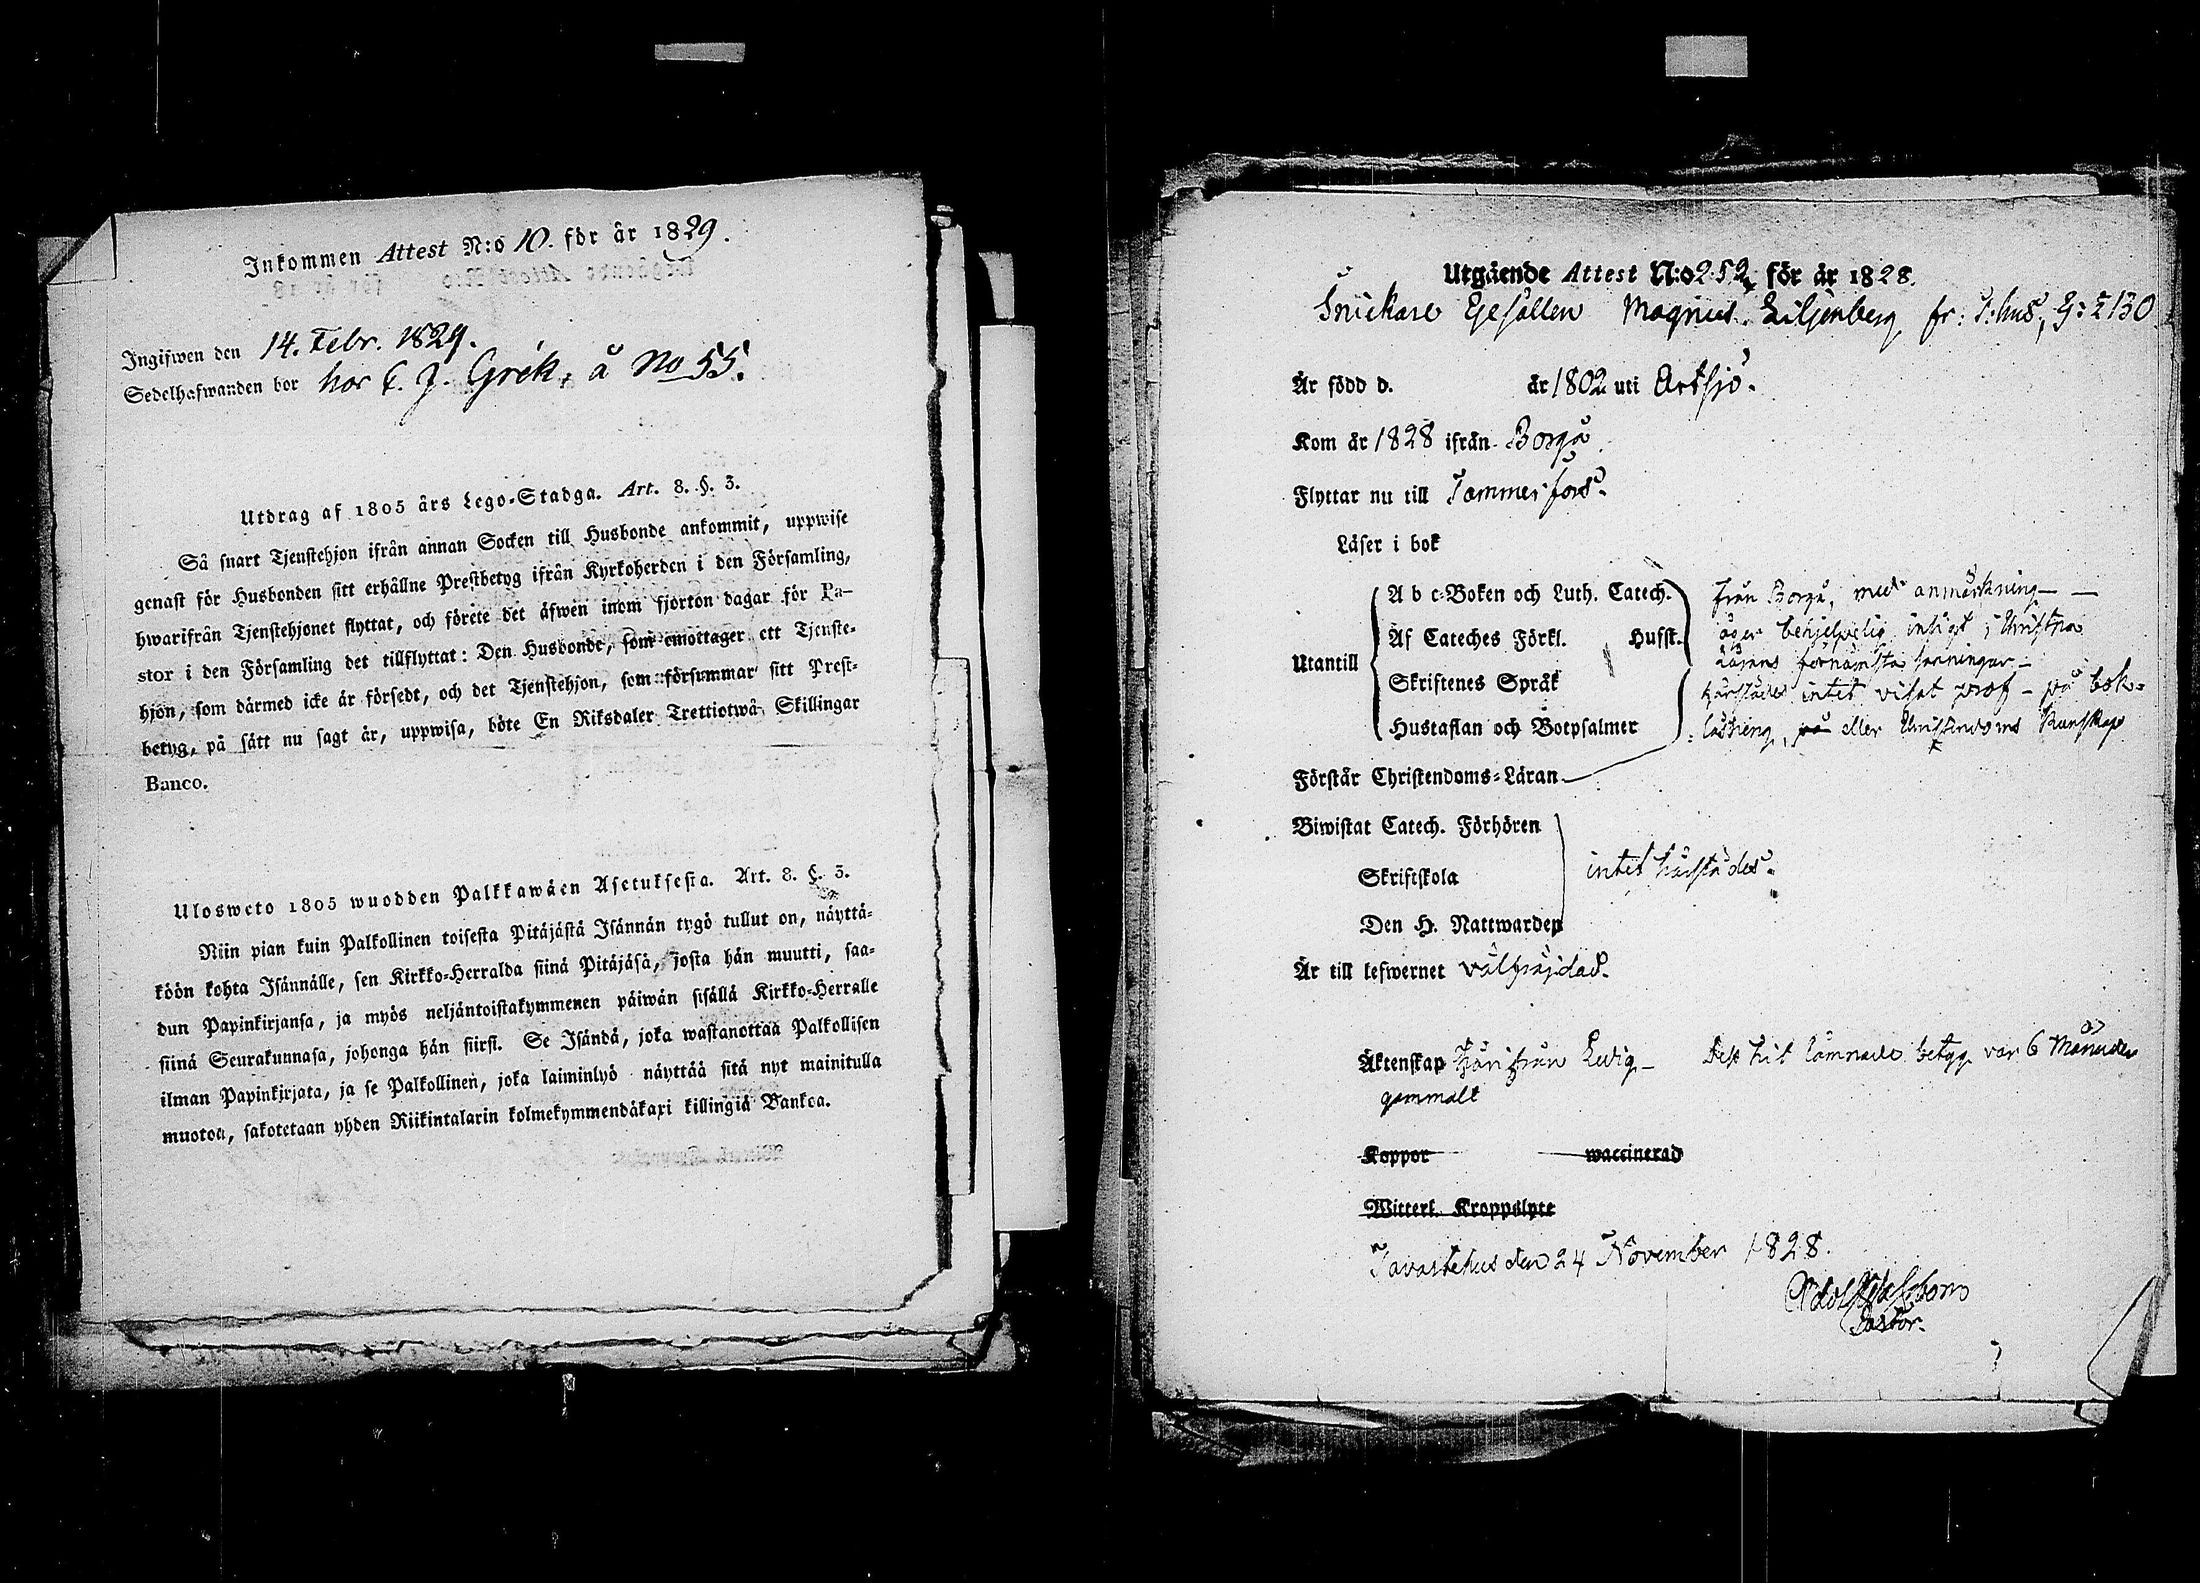 Inkommen Attest N:o 10. för år 1829.
Ingifwen den 14. Febr. 1829.
Sedelhafwanden bor hos C. J. Grék, å No 55.
Utdrag af 1805 års Lego-Stadga. Art. 8. §. 3.
Så snart Tjenstehjon ifrån annan Socken till Husbonde ankommit, uppwise
genast för Husbonden sitt erhållne Prestbetyg ifrån Kyrkoherden i den Församling,
hwarifrån Tjenstehjonet flyttat, och förete det äfwen inom fjorton dagar för Pa-
stor i den Församling det tillflyttat: Den Husbonde, som emottager ett Tjenste-
hjon, som därmed icke är försedt, och det Tjenstehjon, som försummar sitt Prest-
betyg, på sätt nu sagt är, uppwisa, böte En Riksdaler Trettiotwå Skillingar
Banco.
Ulosweto 1805 wuodden Palkkawäen Asetuksesta. Art. 8. §. 3.
Niin pian kuin Palkollinen toisesta Pitäjästä Isännän tygö tullut on, näyttä-
köön kohta Isännälle, sen Kirkko-Herralda siinä Pitäjäsä, josta hän muutti, saa-
dun Papinkirjansa, ja myös neljäntoistakymmenen päiwän sisällä Kirkko-Herralle
siinä Seurakunnasa, johonga hän siirsi. Se Isändä, joka wastanottaa Palkollisen
ilman Papinkirjata, ja se Palkollinen, joka laiminlyö näyttää sitä nyt mainitulla
muotoa, sakotetaan yhden Riikintalarin kolmekymmendäkaxi killingiä Bankoa.
Utgående Attest N:o 252 för år 1828.
Snickare Gesällen Magnus Liljenberg fr: T:hus, G: 130
Är född d. år 1802 uti Artsjö.
Kom år 1828 ifrån Borgå
Flyttar nu till Tammerfors.
Läser i bok
A b c-Boken och Luth. Catech. från Borgå, med anmärkning
Af Cateches Förkl. Husst. äger behjelpelig insigt i Christna
Utantill Lärans förnämsta sanningar
Skriftenes Språk härstädes intet visat prof - på bok-
Hustaflan och Botpsalmer läsning, på eller Christendoms kunskap
Förstår Christendoms-Läran
Biwistat Catech. Förhören
Skriftskola intet härstädes.
Den H. Nattwarden
Är till lefwernet välfräjdad.
Äktenskap härifrån Ledig - Dess hit lämnade betyg var 6 Månader
gammalt
Koppor waccinerad
Witterl. Kroppslyte
Tavastehus den 24 November 1828.
Pastor.